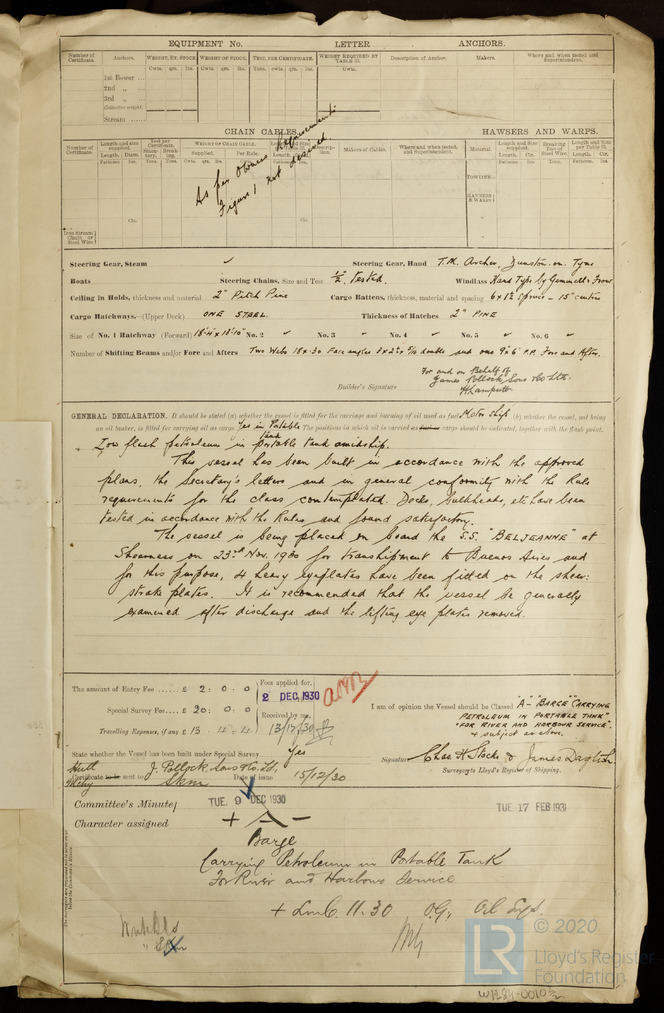 EQUIPMENT No. LETTER ANCHORS.
Number of Certificate. Anchors. WEIGHT, EX. STOCK. WEIGHT OF STOCK. TEST, PER CERTIFICATE. WEIGHT REQUIRED BY TABLE 31. Description of Anchor. Makers. Where and when tested and Superintendent.
Cwts. qrs. lbs. Cwts. qrs. lbs. Tons. cwts. qrs. lbs. Cwts.
1st Bower ...
2nd „
3rd „
Collective weight.
Stream
CHAIN CABLES. HAWSERS AND WARPS.
Number of Certificate. Length and size supplied. Test per Certificate. WEIGHT OF CHAIN CABLE. Makers of Cables. Where and when tested, and Superintendent. Material Length and Size supplied. Breaking Test of Steel Wire. Length and Size per Table 31.
Length. Diam. Supplied. Per Rule. Length. Cir. Tons. Length. Cir.
As per Owners Requirements
Figure 1 not desired.
TOWLINE
HAWSERS & WARPS
Steering Gear, Steam ✓ Steering Gear, Hand T.M. Archer, Dunston-on-Tyne
Boats Steering Chains, Size and Test 1/2" tested. Windlass Hand Type by Gemmell & Frow
Ceiling in Holds, thickness and material 2" Pitch Pine Cargo Battens, thickness, material and spacing 6 x 1½ Spruce - 15" centres
Cargo Hatchways.—(Upper Deck) ONE STEEL. Thickness of Hatches 2" PINE
Size of No. 1 Hatchway (Forward) 18'-4" x 13'-10" No. 2 ✓ No. 3 ✓ No. 4 ✓ No. 5 ✓ No. 6 ✓
Number of Shifting Beams and/or Fore and Afters Two Webs 18 x .30 Face angles 3 x 2½ x 5/16 double and one 9" x 6" P.P. Fore and After.
For and on Behalf of
James Pollock, Sons & Co Ltd.
Builder's Signature
GENERAL DECLARATION. It should be stated (a) whether the vessel is fitted for the carriage and burning of oil used as fuel Motor Ship (b) whether the vessel, not being
an oil tanker, is fitted for carrying oil as cargo Yes in Portable tank The positions in which oil is carried as cargo should be indicated, together with the flash point.
Low flash petroleum in portable tank amidship.
This vessel has been built in accordance with the approved
plans, the Secretary's letters and in general conformity with the Rule
requirements for the class contemplated. Decks, bulkheads, etc have been
tested in accordance with the Rules, and found satisfactory.
The vessel is being placed on board the S.S. "BELJEANNE" at
Sheerness on 23rd Nov. 1930 for transhipment to Buenos Aires and
for this purpose, 4 heavy eyeplates have been fitted on the sheer-
strake plates. It is recommended that the vessel be generally
examined after discharge and the lifting eye plates removed.
The amount of Entry Fee .... £ 2 : 0 : 0 Fees applied for,
2 DEC 1930
Special Survey Fee.... £ 20 : 0 : 0 Received by me,
Travelling Expenses, if any £ 13 : 4 : 4 13/12/30
I am of opinion the Vessel should be Classed "A" - "BARGE" "CARRYING
PETROLEUM IN PORTABLE TANK"
"FOR RIVER AND HARBOUR SERVICE."
& subject as above.
State whether the Vessel has been built under Special Survey Yes
Signature Chas H Stocks & James Daglish
Surveyors to Lloyd's Register of Shipping.
Certificate to be sent to J. Pollock, Sons & Co Ltd, Date of issue 15/12/30
Committee's Minute TUE. 9 DEC 1930 TUE. 17 FEB 1931
Character assigned + A -
Barge
Carrying Petroleum in Portable Tank
For River and Harbour Service
+ LMC. 11.30 O.G. Oil Eng.
© 2020
LR Lloyd's Register
Foundation
W1284-0010½